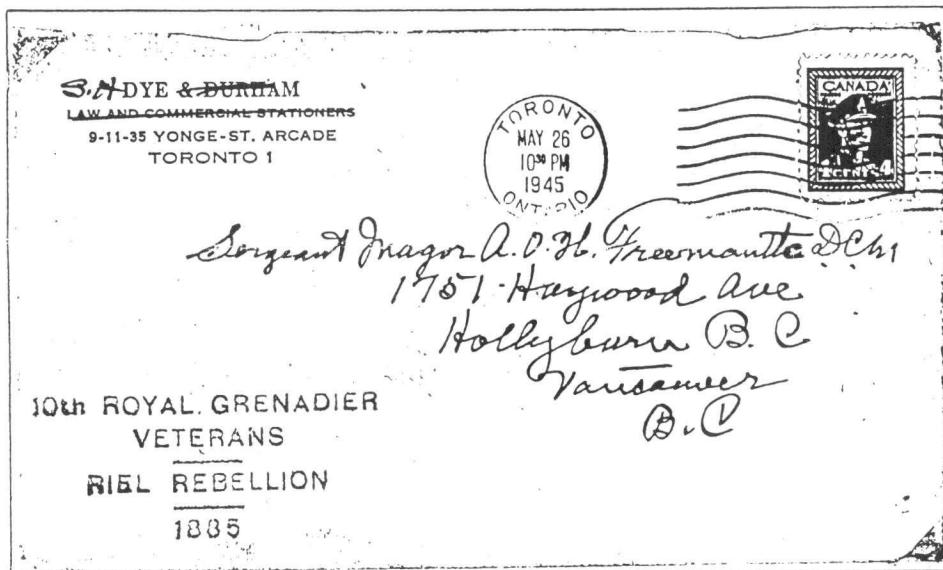 S.H DYE & DURHAM
LAW AND COMMERCIAL STATIONERS
9-11-35 YONGE-ST. ARCADE
TORONTO 1
TORONTO
MAY 26
10³⁰ PM
1945
ONTARIO
CANADA
CENTS 4
Sergeant Magor A. O. H. Freemantle DCM
1751 Haywood Ave
Hollyburn B. C
Vancouver
B. C
10th ROYAL. GRENADIER
VETERANS
RIEL REBELLION
1885